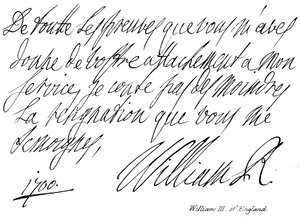 De toutte les preuves que vous m'aves
donne de vostre attachement a mon
service, je conte pas des moindres
la resignation que vous me
temoignes,
1700. William R.
William III. of England.